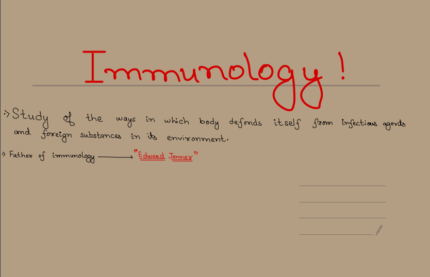 Immunology!
:> Study of the ways in which body defends itself from infectious agents
and foreign substances in its environment.
o Father of immunology → "Edward Jenner"